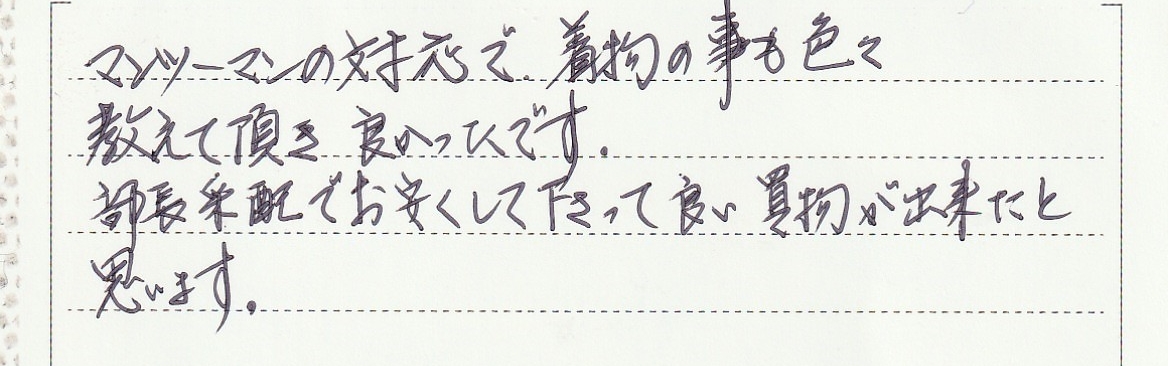 マンツーマンの対応で、着物の事も色々
教えて頂き良かったです。
部長采配でお安くして下さって良い買物が出来たと
思います。